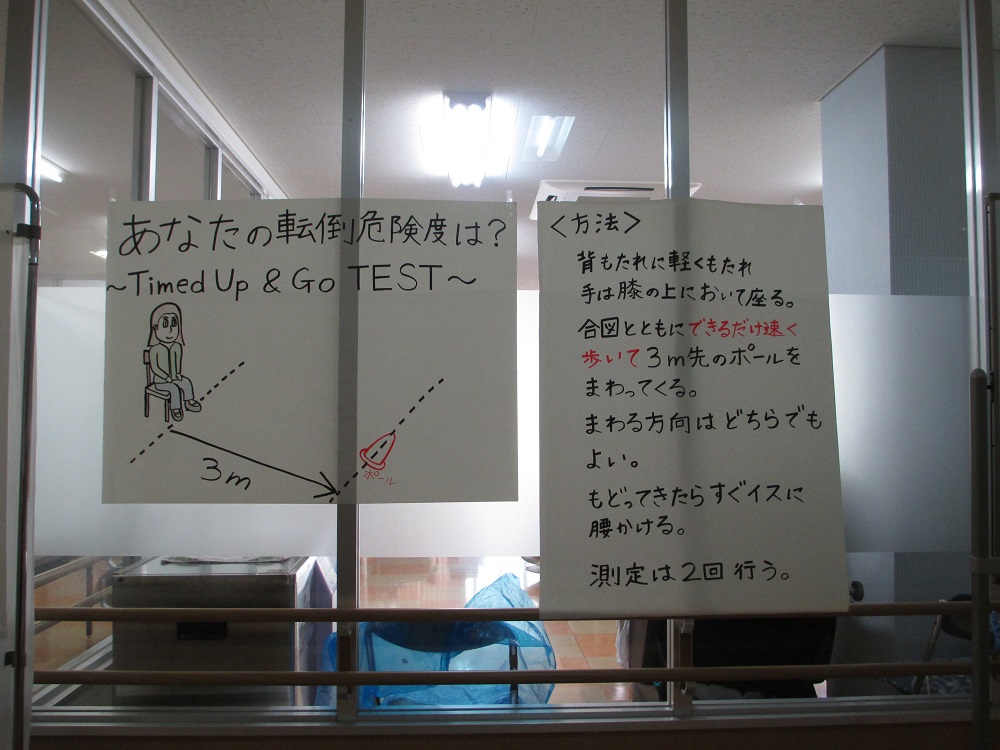 あなたの転倒危険度は?
~Timed Up & Go TEST~
3m
ポール
<方法>
背もたれに軽くもたれ
手は膝の上において座る。
合図とともにできるだけ速く
歩いて3m先のポールを
まわってくる。
まわる方向はどちらでも
よい。
もどってきたらすぐイスに
腰かける。
測定は2回行う。